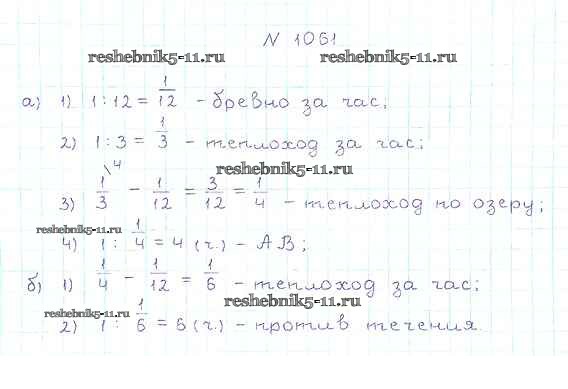 N 1061
reshebnik5-11.ru reshebnik5-11.ru
а) 1) 1 : 12 = 1/12 - бревно за час;
2) 1 : 3 = 1/3 - теплоход за час;
reshebnik5-11.ru
3) 1/3 \4 - 1/12 = 3/12 = 1/4 - теплоход по озеру;
reshebnik5-11.ru
4) 1 : 1/4 = 4 (ч.) - АВ;
б) 1) 1/4 - 1/12 = 1/6 - теплоход за час;
reshebnik5-11.ru
reshebnik5-11.ru
2) 1 : 1/6 = 6 (ч.) - против течения.